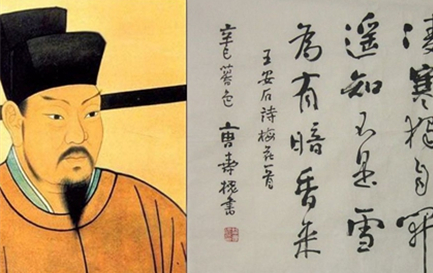 凌寒獨自開
遥知不是雪
為有暗香来
王安石诗梅花一首
辛巳